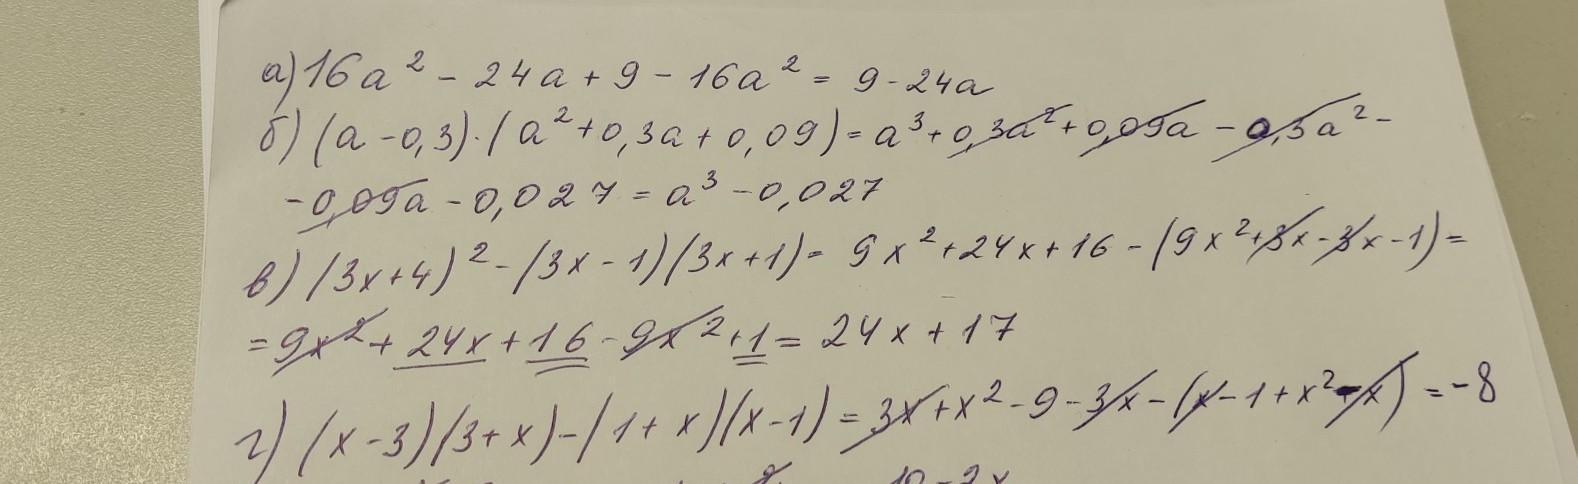 а) 16a² - 24a + 9 - 16a² = 9 - 24a
б) (a - 0,3)·(a² + 0,3a + 0,09) = a³ + 0,3a² + 0,09a - 0,3a² -
- 0,09a - 0,027 = a³ - 0,027
в) (3x + 4)² - (3x - 1)(3x + 1) = 9x² + 24x + 16 - (9x² + 3x - 3x - 1) =
= 9x² + 24x + 16 - 9x² + 1 = 24x + 17
г) (x - 3)(3 + x) - (1 + x)(x - 1) = 3x + x² - 9 - 3x - (x - 1 + x² - x) = -8